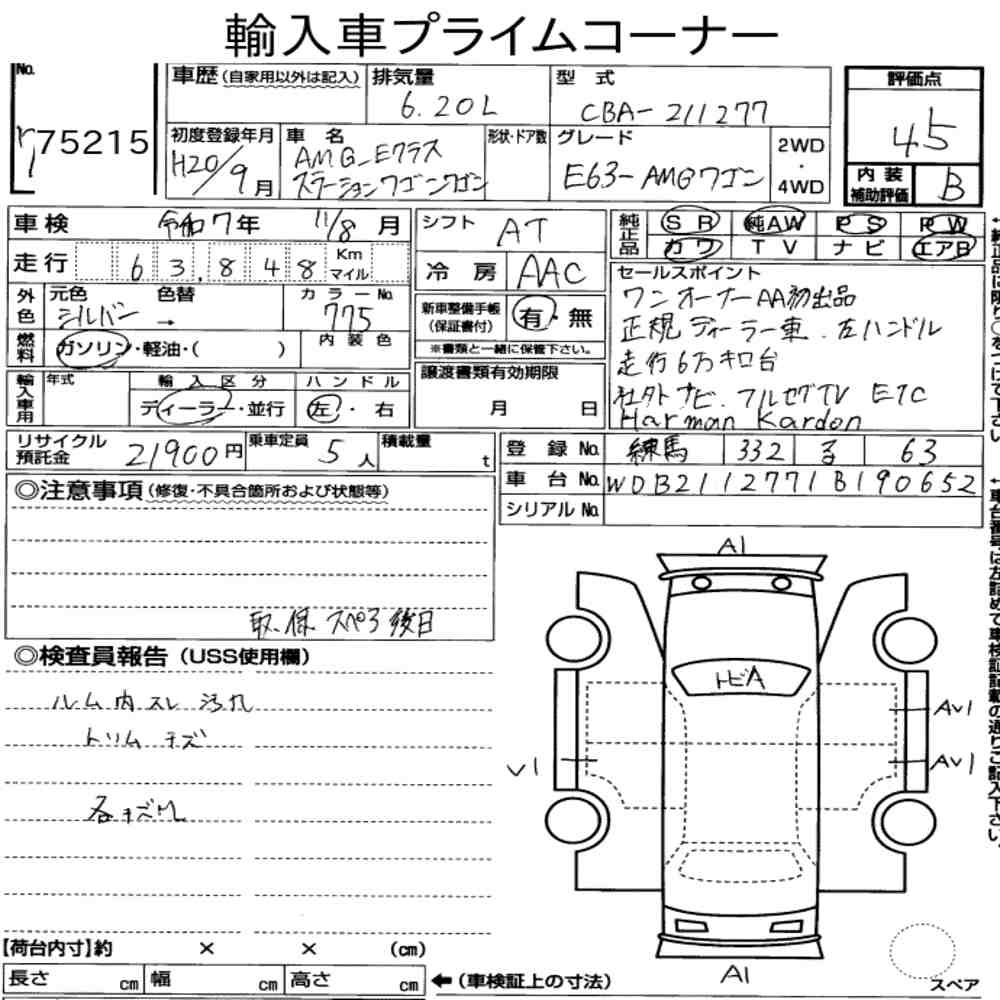 輸入車プライムコーナー
No.
75215
車歴(自家用以外は記入)
排気量
6.20L
型 式
CBA-211277
評価点
45
内装補助評価
B
初度登録年月
H20/9月
車 名
AMG_Eクラス
ステーションワゴンワゴン
形状・ドア数
グレード
E63-AMGワゴン
2WD
・
4WD
車検
令和7年 11/8 月
走行
63,848
Km
マイル
外色
元色
シルバー →
色替
カラーNo.
775
燃料
ガソリン・軽油・( )
内装色
輸入車用
年式
輸入区分
ディーラー・並行
ハンドル
左・右
シフト
AT
冷房
AAC
新車整備手帳
(保証書付)
有・無
※書類と一緒に保管下さい。
譲渡書類有効期限
月 日
純正品
SR 純AW PS PW
カワ TV ナビ エアB
セールスポイント
ワンオーナーAA初出品
正規ディーラー車.左ハンドル
走行6万キロ台
社外ナビ.フルセグTV ETC
Harman Kardon
リサイクル
預託金
21900円
乗車定員
5人
積載量
t
登録No.
練馬 332 る 63
車台No.
WDB2112771B190652
シリアルNo.
◎注意事項(修復・不具合箇所および状態等)
取.保.スペ3後日
◎検査員報告(USS使用欄)
ルーム内スレ汚れ
トリムキズ
各キズ凹
A1
トビA
AV1
AV1
V1
A1
スペア
【荷台内寸】約 × × (cm)
長さ cm 幅 cm 高さ cm
←(車検証上の寸法)
←純正品に限り○をつけて下さい。
←車台番号は左詰めで車検証記載の通りご記入下さい。